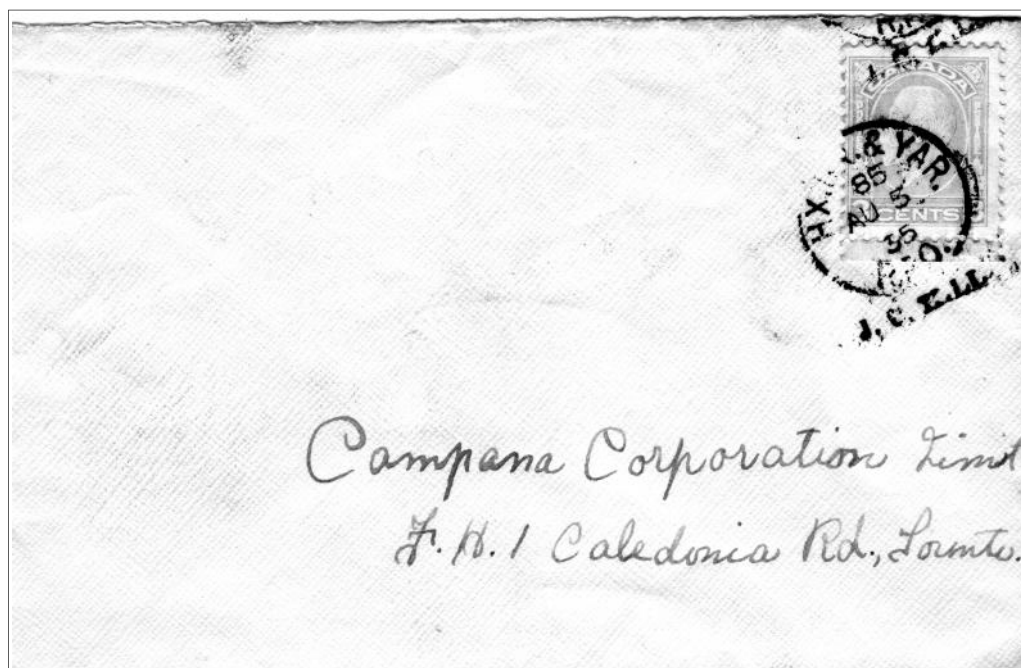 CANADA
HX. & YAR.
85
AU 5
35
CENTS
J. C. KILL
Campana Corporation Limit
F. H. 1 Caledonia Rd., Toronto.